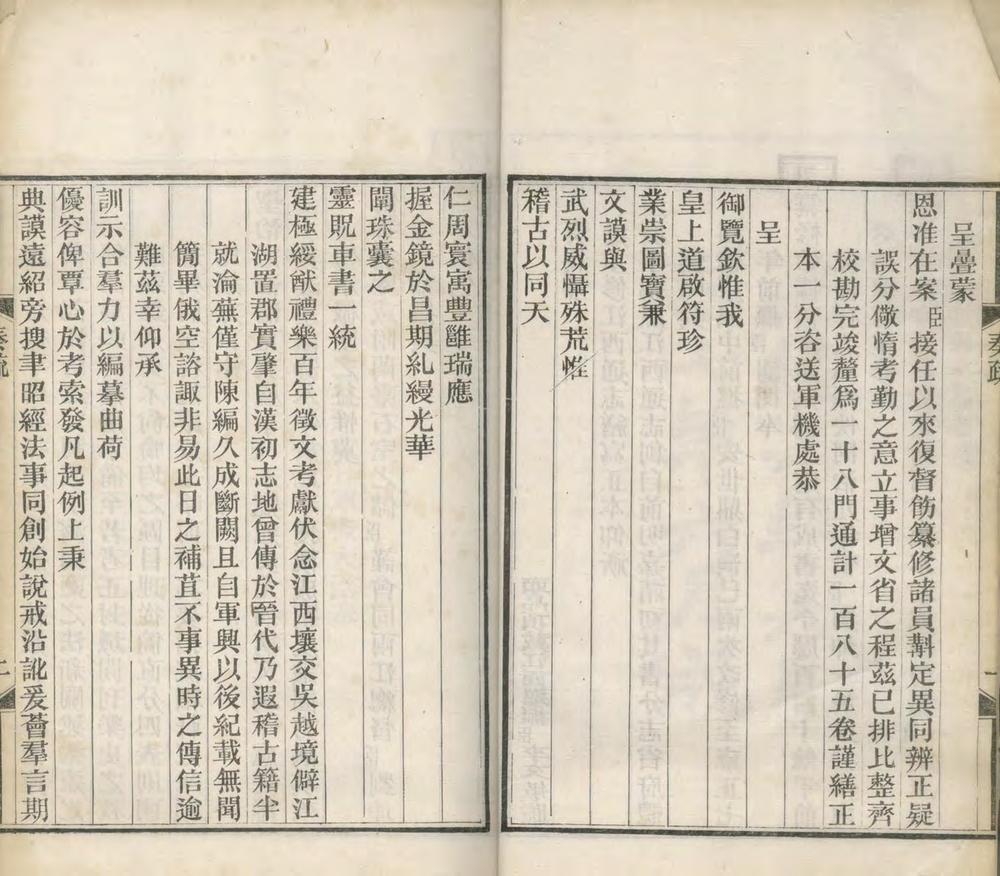 奏疏
一
呈疊蒙
恩准在案臣接任以來復督飭纂修諸員斠定異同辨正疑
誤分儆惰考勤之意立事增文省之程茲已排比整齊
校勘完竣釐爲一十八門通計一百八十五卷謹繕正
本一分咨送軍機處恭
呈
御覽欽惟我
皇上道啟符珍
業崇圖寶兼
文謨與
武烈威懾殊荒惟
稽古以同天
仁周寰㝢豐雝瑞應
握金鏡於昌期糺縵光華
闡珠囊之
靈貺車書一統
建極綏猷禮樂百年徵文考獻伏念江西壤交吳越境僻江
湖置郡實肇自漢初志地曾傳於晉代乃遐稽古籍半
就淪蕪僅守陳編久成斷闕且自軍興以後紀載無聞
簡畢俄空諮諏非易此日之補苴不事異時之傳信逾
難茲幸仰承
訓示合羣力以編摹曲荷
優容俾覃心於考索發凡起例上秉
典謨遠紹旁搜聿昭經法事同創始說戒沿訛爰薈羣言期
奏疏
二